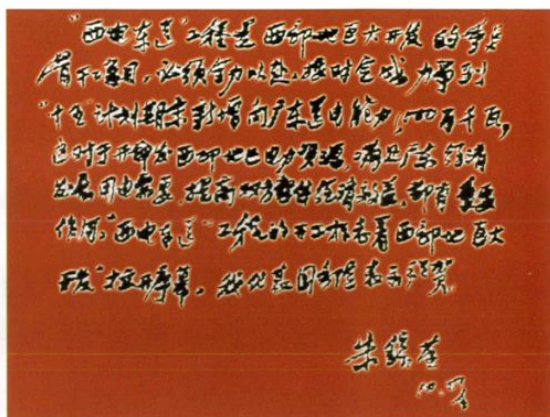 “西电东送”工程是西部地区大开发的重点
项目，必须全力以赴，按时完成，力争到
“十五”计划期末新增向广东送电能力1000万千瓦，
这对于开发西部地区电力资源，满足广东经济
发展用电需要，提高东西部经济效益，都有重要
作用。“西电东送”工程的开工标志着西部地区大
开发“拉开序幕，我代表国务院表示祝贺。
朱镕基